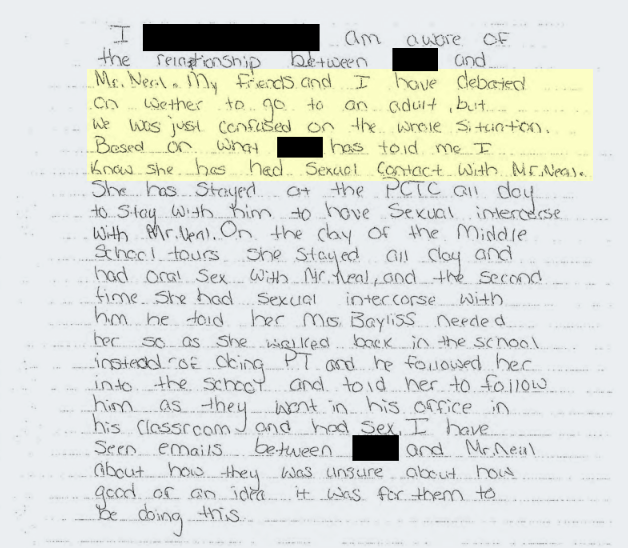 I am aware of
the relationship between and
Mr. Neal. My friends and I have debated
on wether to go to an adult, but
we was just confused on the whole situation.
Based on what has told me I
know she has had sexual contact with Mr. Neal.
She has stayed at the PCTC all day
to stay with him to have sexual intercorse
with Mr. Neal. On the day of the Middle
School tours she stayed all day and
had oral sex with Mr. Neal, and the second
time she had sexual intercorse with
him he told her Mrs. Bayliss needed
her so as she walked back in the school
instead of doing PT and he followed her
into the school and told her to follow
him as they went in his office in
his classroom and had sex. I have
seen emails between and Mr. Neal
about how they was unsure about how
good of an idea it was for them to
be doing this